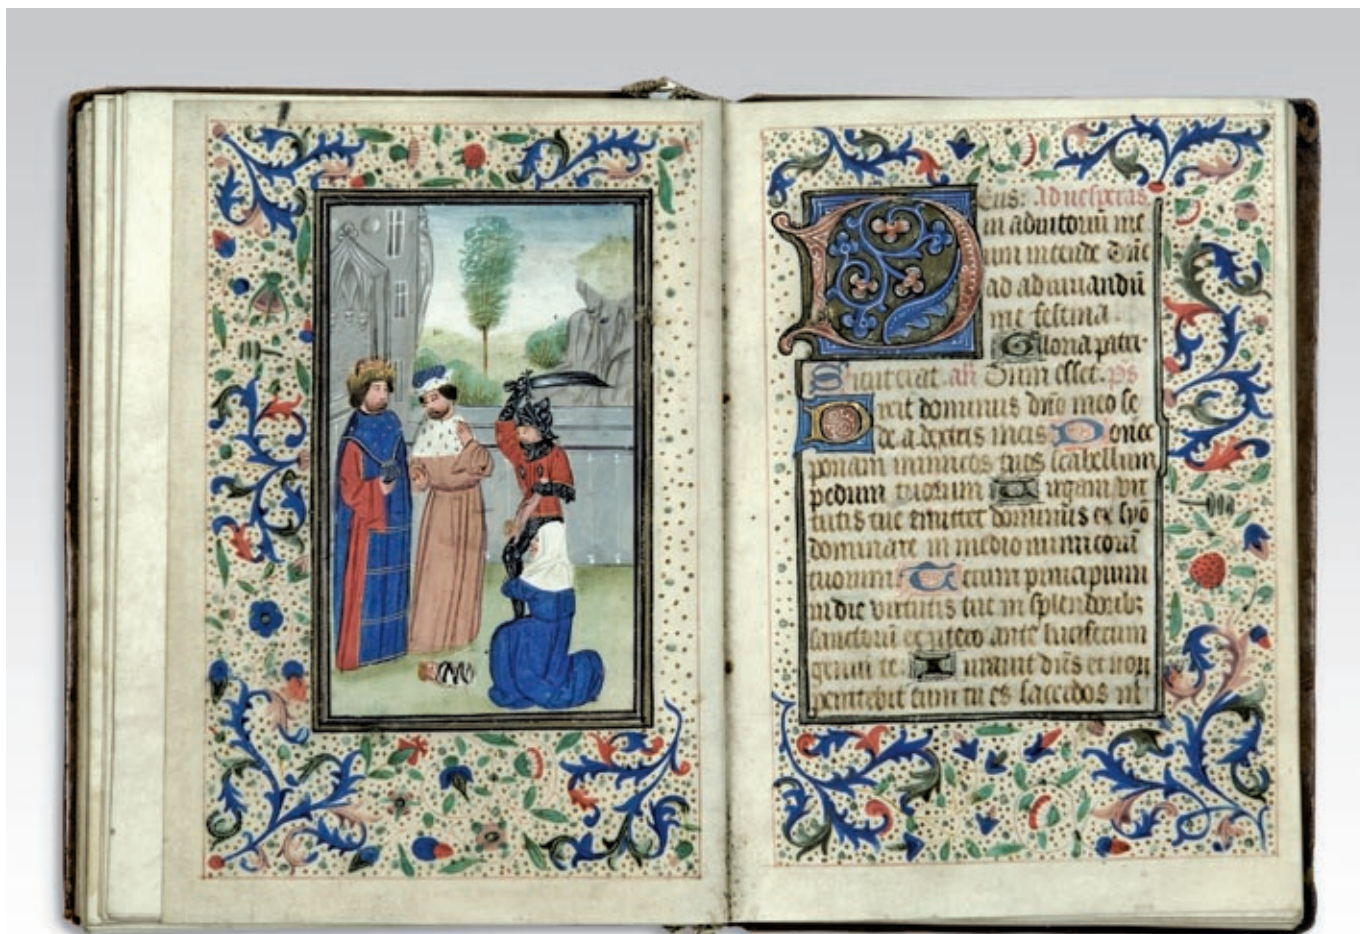 Deus: Ad uesperas
in adiutoriū me
um intende Dn̄e
ad adiuuandū
me festina
Gloria patri·
Sicut erat. añ Dum esset. ps
Dixit dominus dn̄o meo se
de a dextris meis Donec
ponam inimicos tuos scabellum
pedum tuorum Uirgam vir
tutis tue emittet dominus ex syo
dominare in medio inimicorū
tuorum Tecum principium
in die virtutis tue in splendoribȝ
sanctorū ex utero ante luciferum
genui te: Iurauit dn̄s et non
penitebit eum tu es sacerdos in